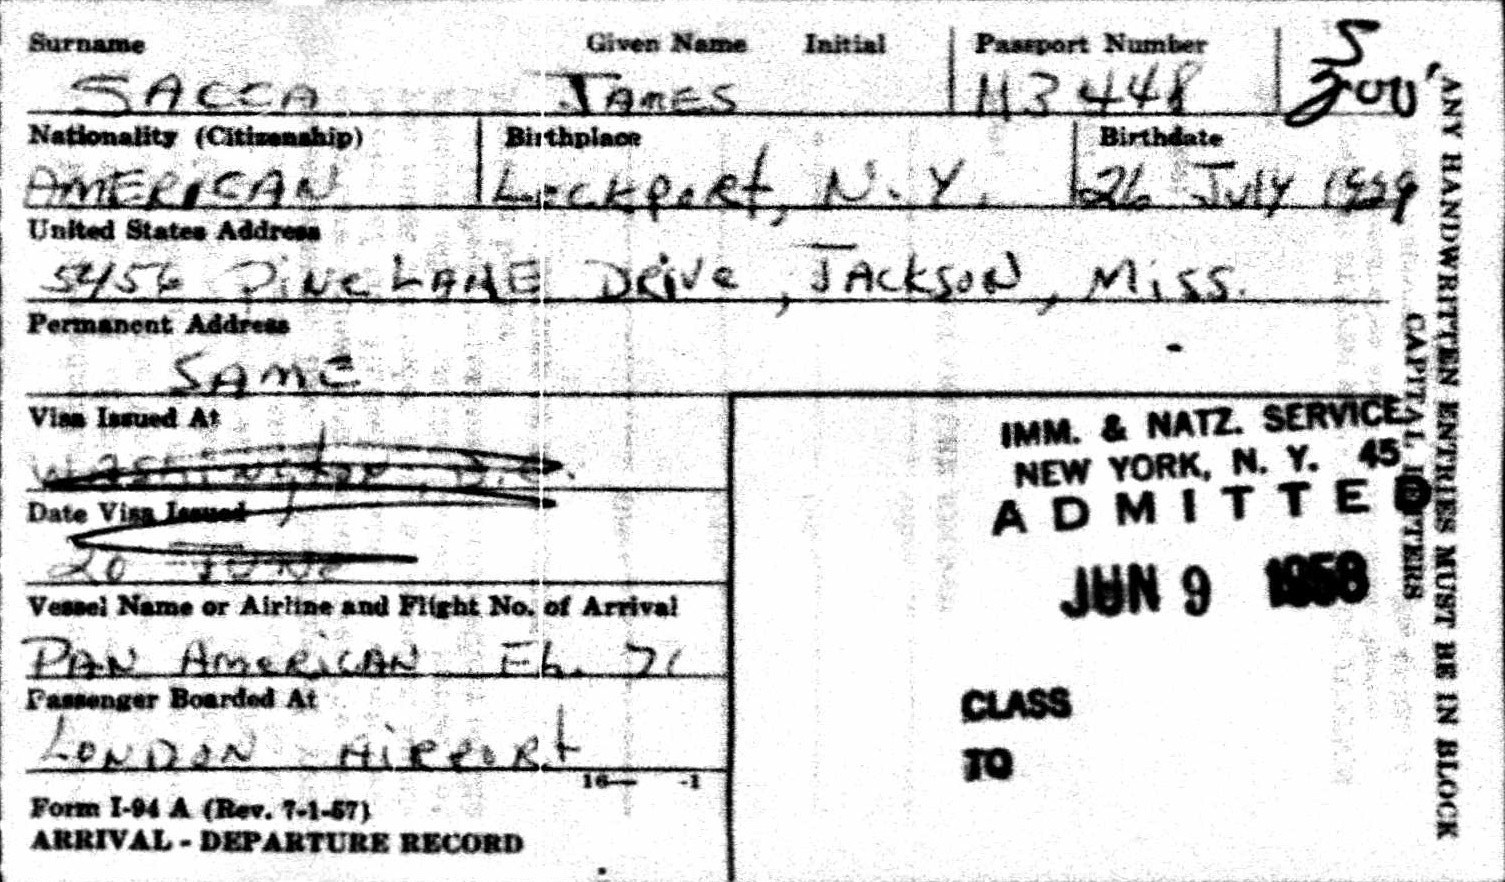 Surname Given Name Initial Passport Number
SACCA JAMES 113448
Nationality (Citizenship) Birthplace Birthdate
AMERICAN Lockport, N.Y. 26 July 1929
United States Address
5456 Pine LANE Drive, JACKSON, Miss.
Permanent Address
SAME
Visa Issued At
Washington, D.C.
Date Visa Issued
20 June
Vessel Name or Airline and Flight No. of Arrival
PAN AMERICAN 71
Passenger Boarded At
LONDON AIRPORT
16— -1
Form I-94 A (Rev. 7-1-57)
ARRIVAL - DEPARTURE RECORD
IMM. & NATZ. SERVICE
NEW YORK, N. Y. 45
ADMITTED
JUN 9 1958
CLASS
TO
ANY HANDWRITTEN ENTRIES MUST BE IN BLOCK
CAPITAL LETTERS